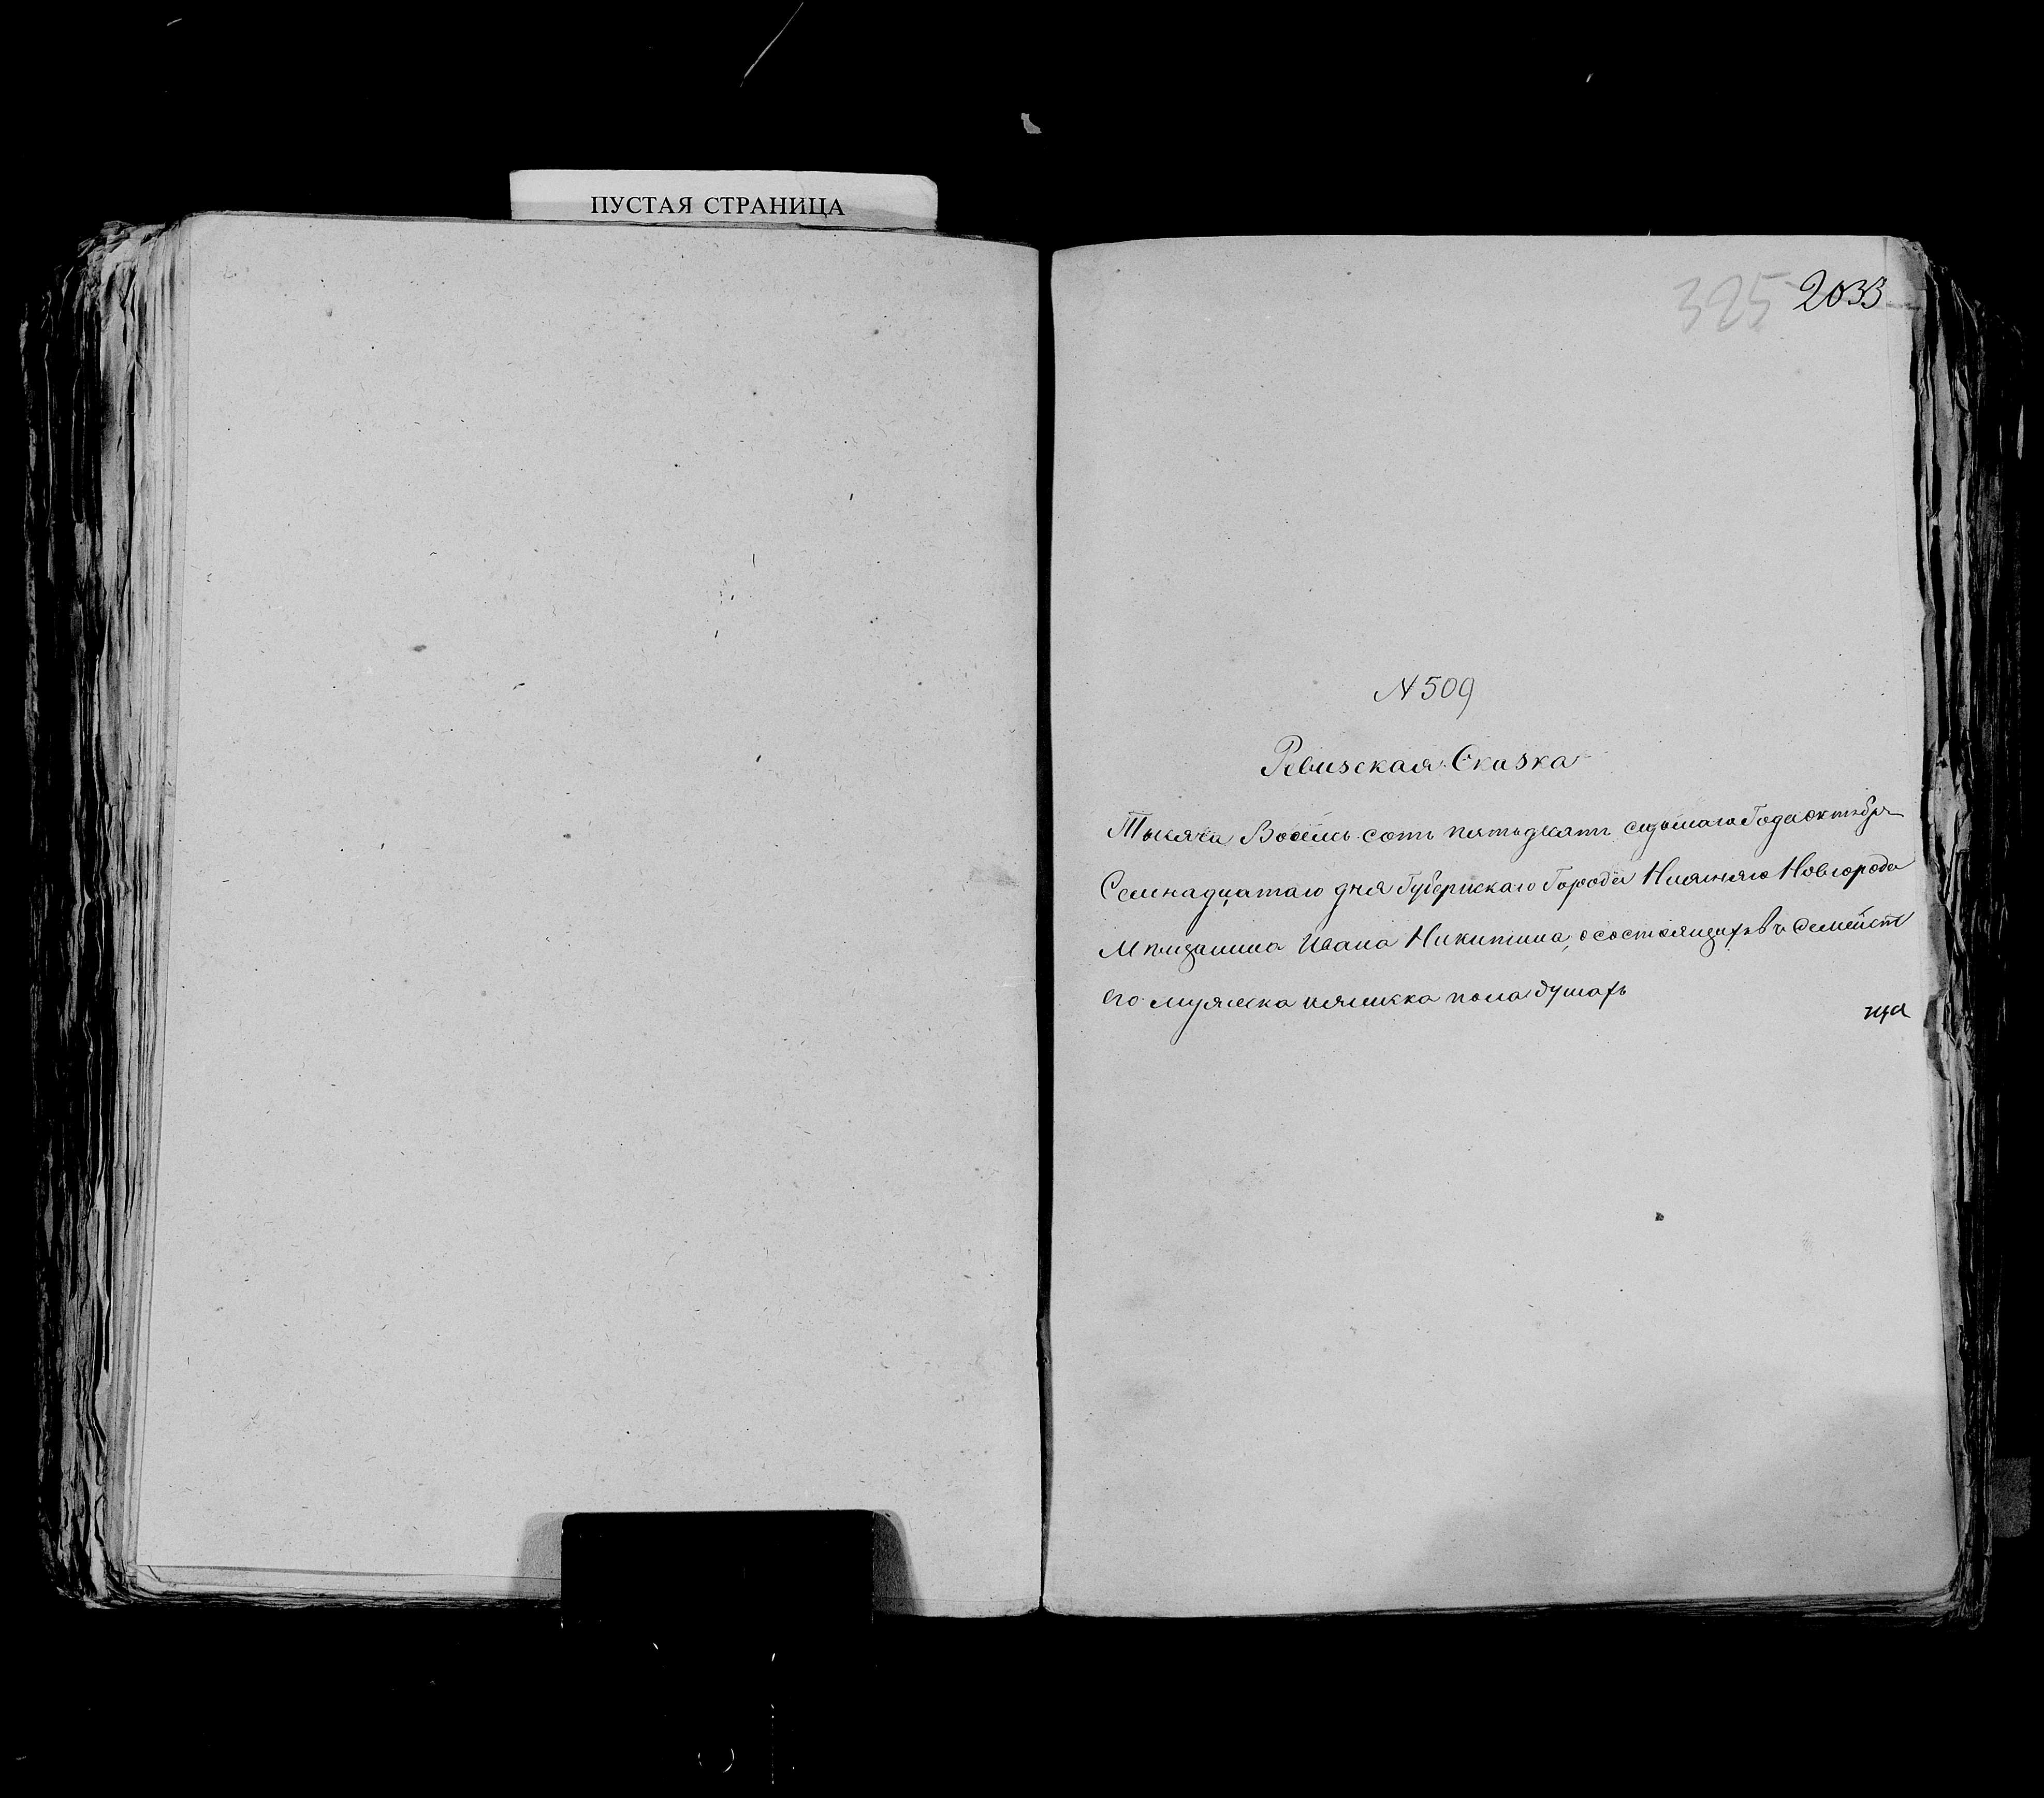 ПУСТАЯ СТРАНИЦА
325 2033
N 509
Ревизская Сказка
Тысяча Восемь сотъ пятьдесятъ седьмаго Года октября
Семнадцатаго дня Губернскаго Города Нижняго Новгорода
Мѣщанина Ивана Никитина, о состоящихъ въ Семейст
его мужеска и женска пола душахъ